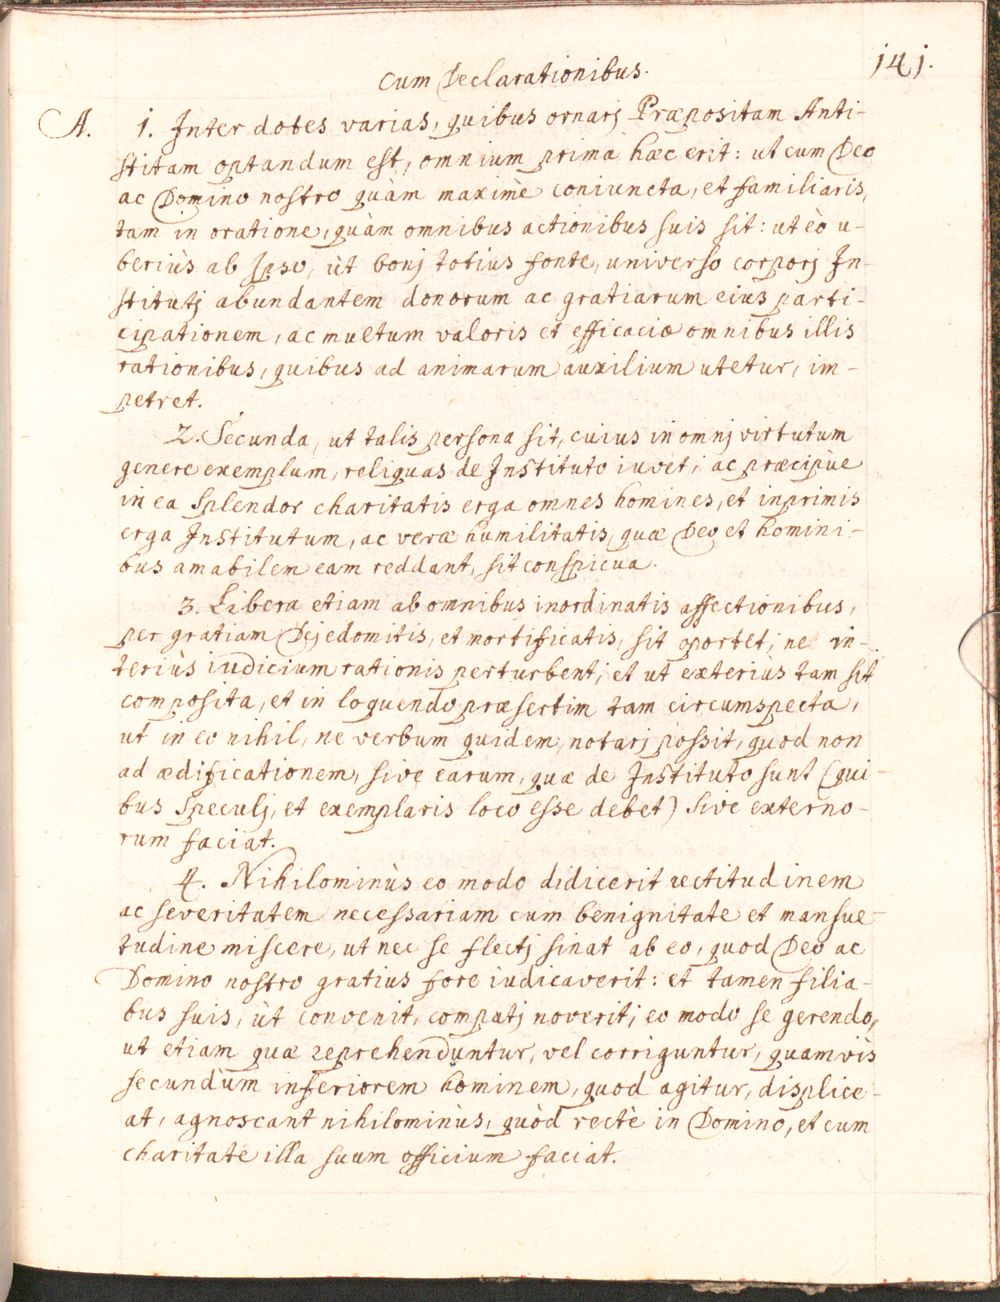 141.
Cum Declarationibus.
A. 1. Inter dotes varias, quibus ornarj Præpositam Anti-
stitam optandum est, omnium prima hæc erit: ut cum Deo
ac Domino nostro quàm maximè coniuncta, et familiaris,
tam in oratione, quàm omnibus actionibus suis sit: ut eò u-
beriùs ab Ipso, ùt bonj totius fonte, universo corporj In-
stitutj abundantem donorum ac gratiarum eius parti-
cipationem, ac multum valoris et efficaciæ omnibus illis
rationibus, quibus ad animarum auxilium utetur, im-
petret.
2. Secunda, ut talis persona sit, cuius in omnj virtutum
genere exemplum, reliquas de Instituto iuvet; ac præcipùe
in ea Splendor charitatis erga omnes homines, et inprimis
erga Institutum, ac veræ humilitatis, quæ Deo et homini-
bus amabilem eam reddant, sit conspicua.
3. Libera etiam ab omnibus inordinatis affectionibus,
per gratiam Dej edomitis, et mortificatis, sit oportet; ne in-
teriùs iudicium rationis perturbent; et ut exteriùs tam sit
composita, et in loquendo præsertim tam circumspecta,
ut in eo nihil, ne verbum quidem, notarj possit, quod non
ad ædificationem, sive earum, quæ de Instituto sunt (qui-
bus Speculj, et exemplaris loco esse debet) sive externo-
rum faciat.
4. Nihilominùs eo modo didicerit rectitudinem
ac severitatem necessariam cum benignitate et mansue-
tudine miscere, ut nec se flectj sinat ab eo, quod Deo ac
Domino nostro gratius fore iudicaverit: et tamen filia-
bus suis, ùt convenit, compatj noverit; eo modo se gerendo,
ut etiam quæ reprehenduntur, vel corriguntur, quamvis
secundùm inferiorem hominem, quod agitur, displice-
at, agnoscant nihilominùs, quòd rectè in Domino, et cum
charitate illa suum officium faciat.